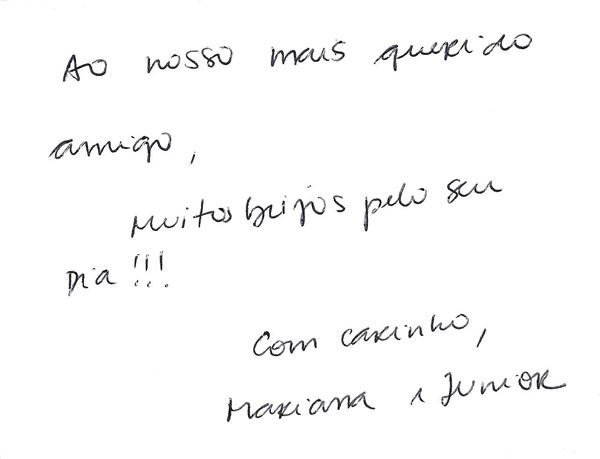 Ao nosso mais querido
amigo,
Muitos beijos pelo seu
Dia!!!
Com carinho,
Mariana e Junior